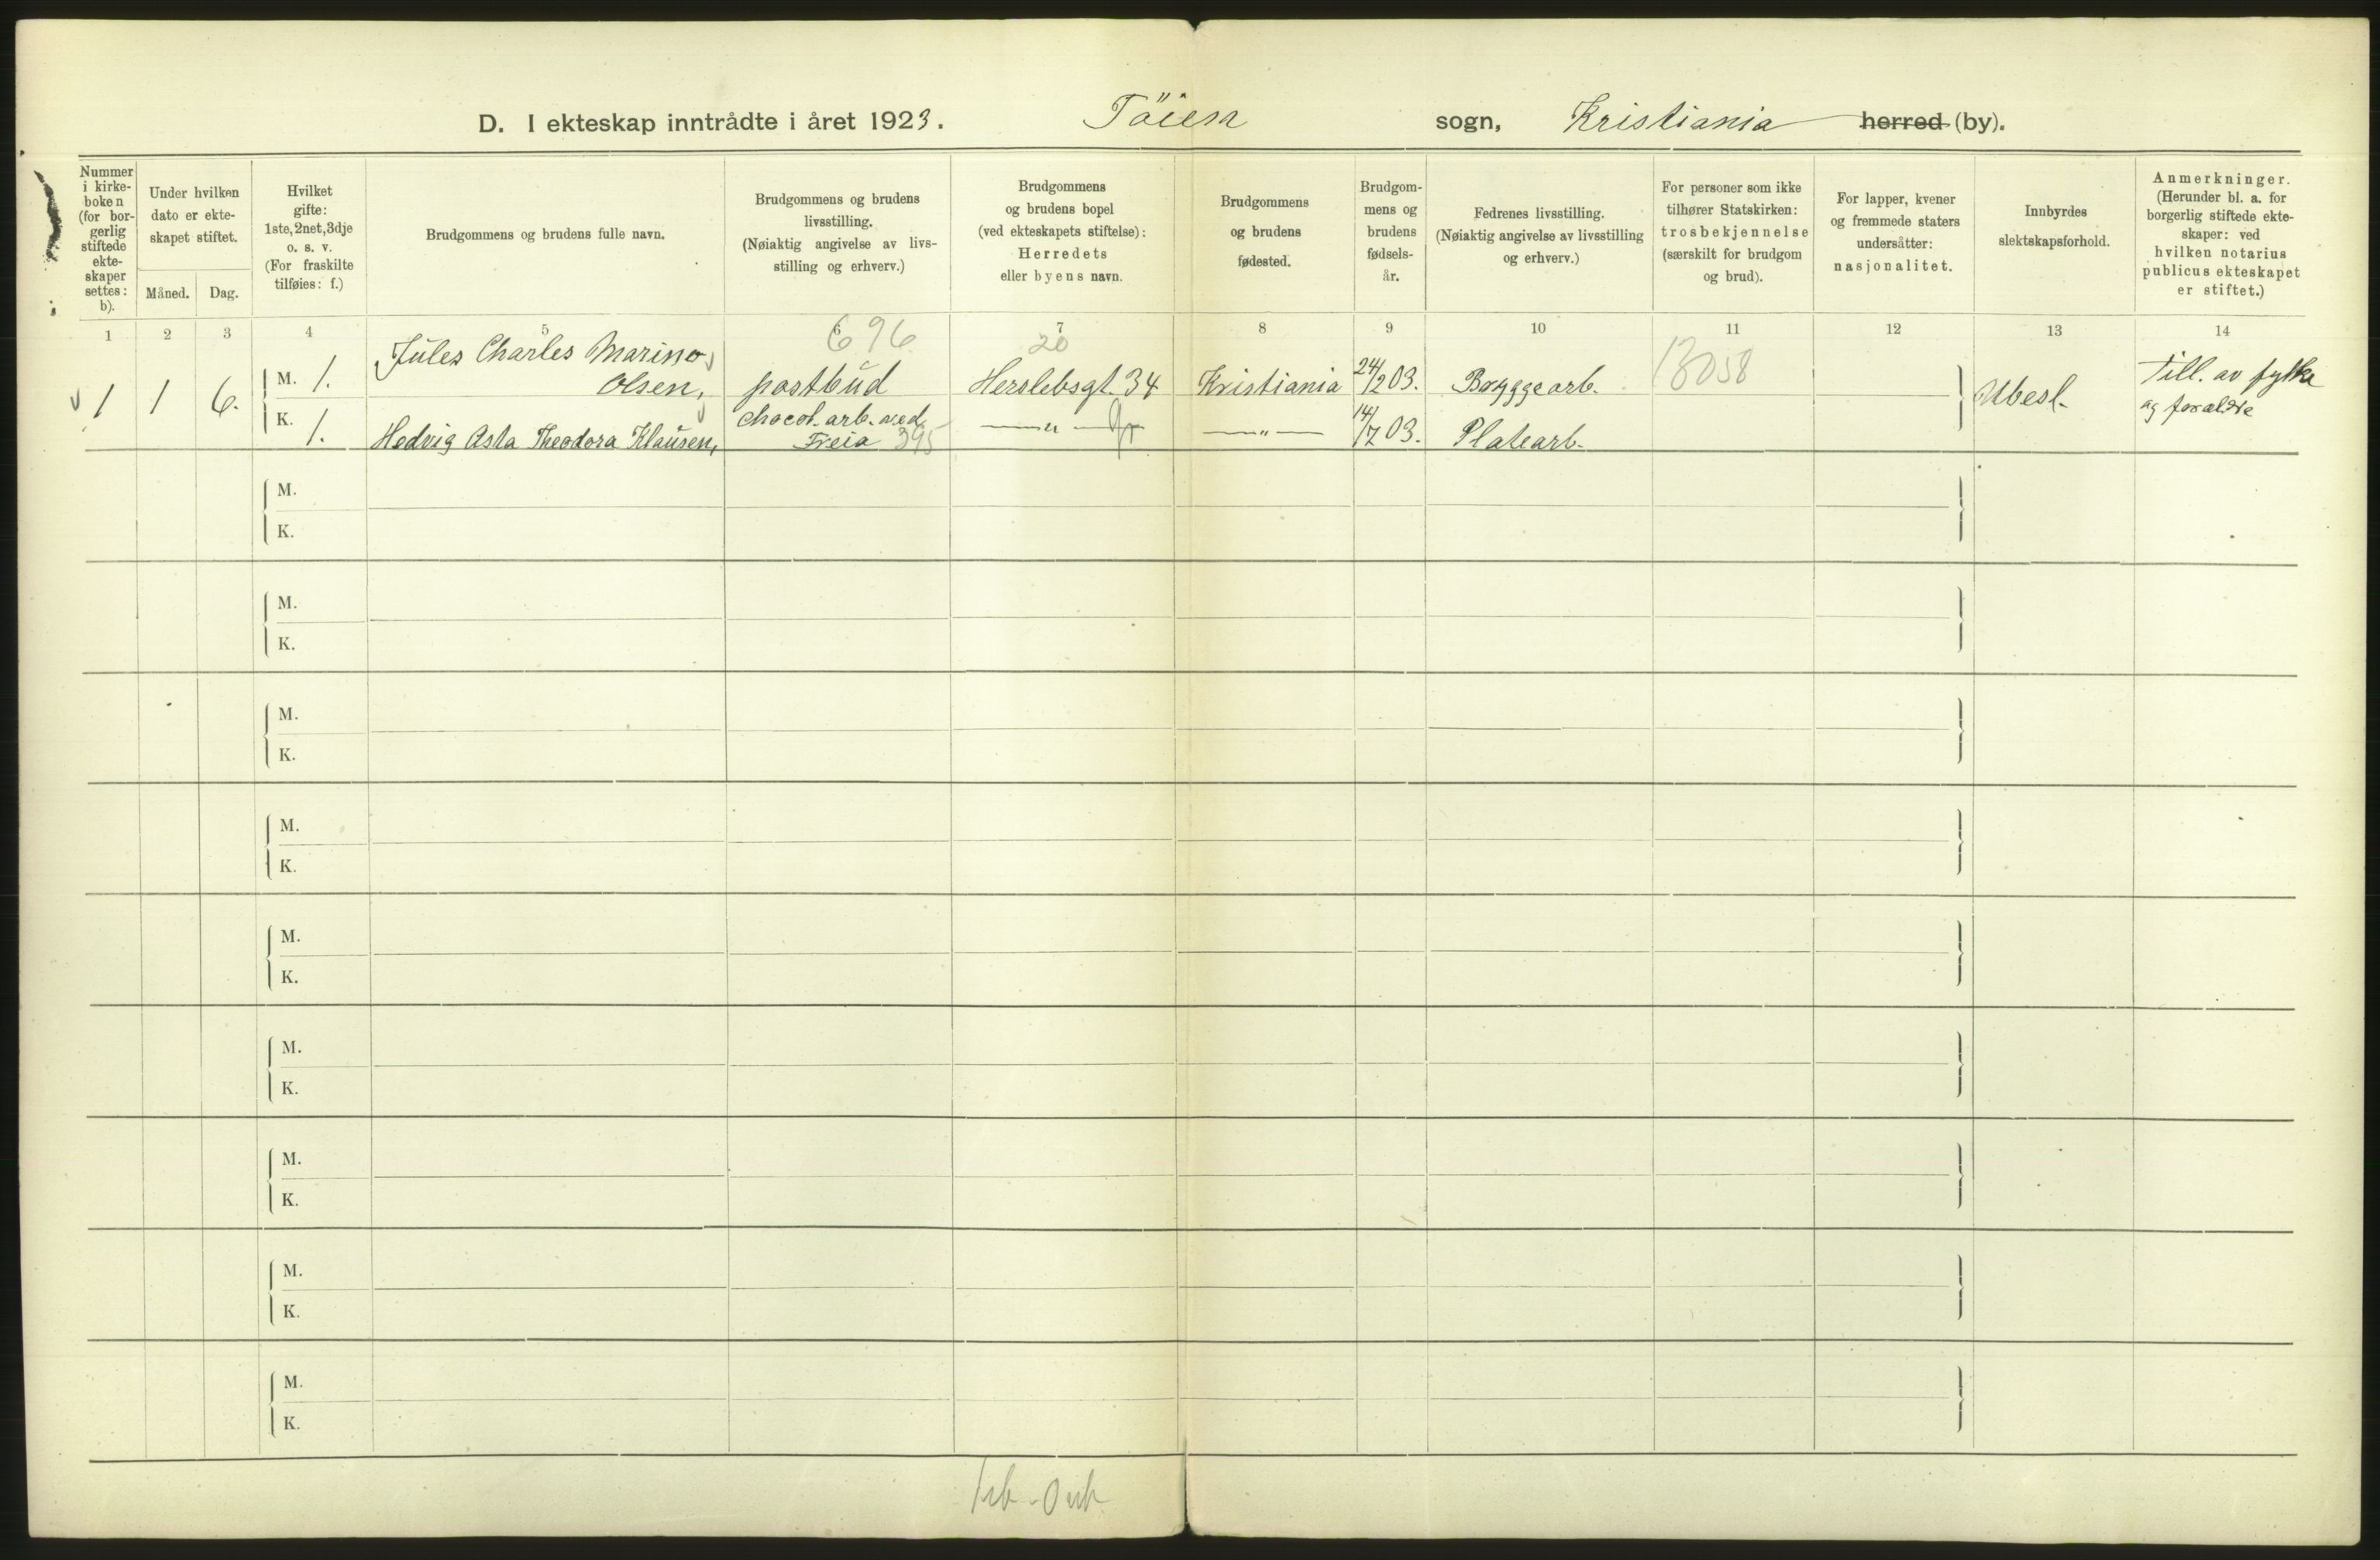 D. I ekteskap inntrådte i året 1923. Töien sogn, Kristiania herred (by).
Nummer i kirkeboken (for borgerlig stiftede ekteskaper settes: b).
Under hvilken dato er ekteskapet stiftet.
Måned. Dag.
Hvilket gifte: 1ste, 2net, 3dje o. s. v. (For fraskilte tilføies: f.)
Brudgommens og brudens fulle navn.
Brudgommens og brudens livsstilling. (Nøiaktig angivelse av livsstilling og erhverv.)
Brudgommens og brudens bopel (ved ekteskapets stiftelse): Herredets eller byens navn.
Brudgommens og brudens fødested.
Brudgommens og brudens fødselsår.
Fedrenes livsstilling. (Nøiaktig angivelse av livsstilling og erhverv.)
For personer som ikke tilhører Statskirken: trosbekjennelse (særskilt for brudgom og brud).
For lapper, kvener og fremmede staters undersåtter: nasjonalitet.
Innbyrdes slektskapsforhold.
Anmerkninger. (Herunder bl. a. for borgerlig stiftede ekteskaper: ved hvilken notarius publicus ekteskapet er stiftet.)
1 2 3 4 5 6 7 8 9 10 11 12 13 14
696 20 13058
1 1 6.
M. 1. Jules Charles Marino Olsen, postbud Herslebsgt. 34 Kristiania 24/2 03. Byggearb. Ubesl. Till. av fylke og forældre
K. 1. Hedvig Asta Theodora Klausen, Chocol. arb. ved Freia 395 —"— —"— 14/7 03. Platearb.
M.
K.
M.
K.
M.
K.
M.
K.
M.
K.
M.
K.
M.
K.
M.
K.
M.
K.